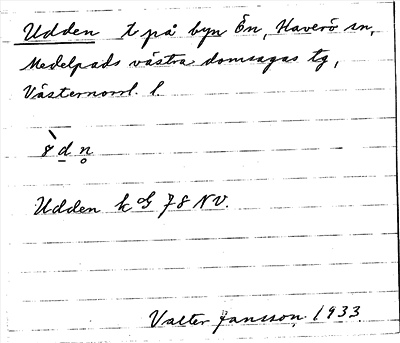 Udden t på byn Ön, Haverö sn,
Medelpads västra domsagas tg,
Västernorrl. l.
Udden k og 78 NV.
Valter Jansson, 1933.